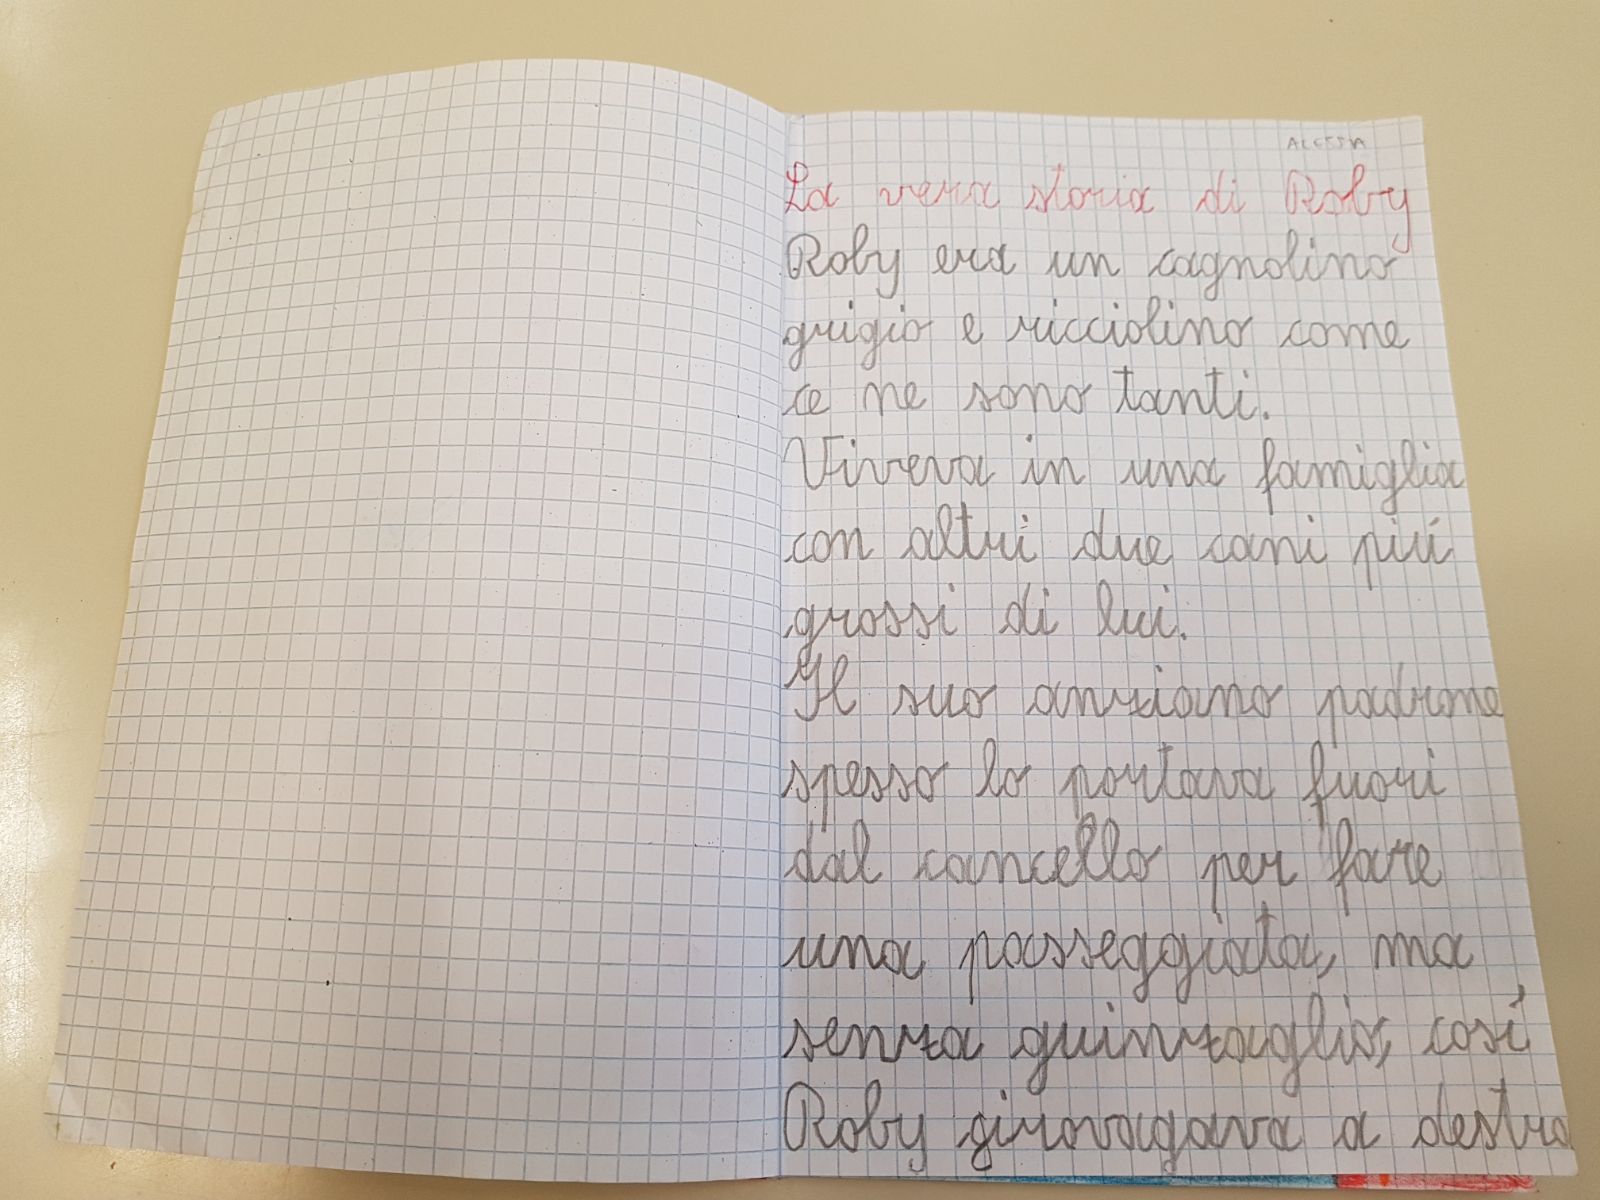 ALESSIA
La vera storia di Roby
Roby era un cagnolino
grigio e ricciolino come
ce ne sono tanti.
Viveva in una famiglia
con altri due cani piú
grossi di lui.
Il suo anziano padrone
spesso lo portava fuori
dal cancello per fare
una passeggiata, ma
senza guinzaglio, cosí
Roby girovagava a destra